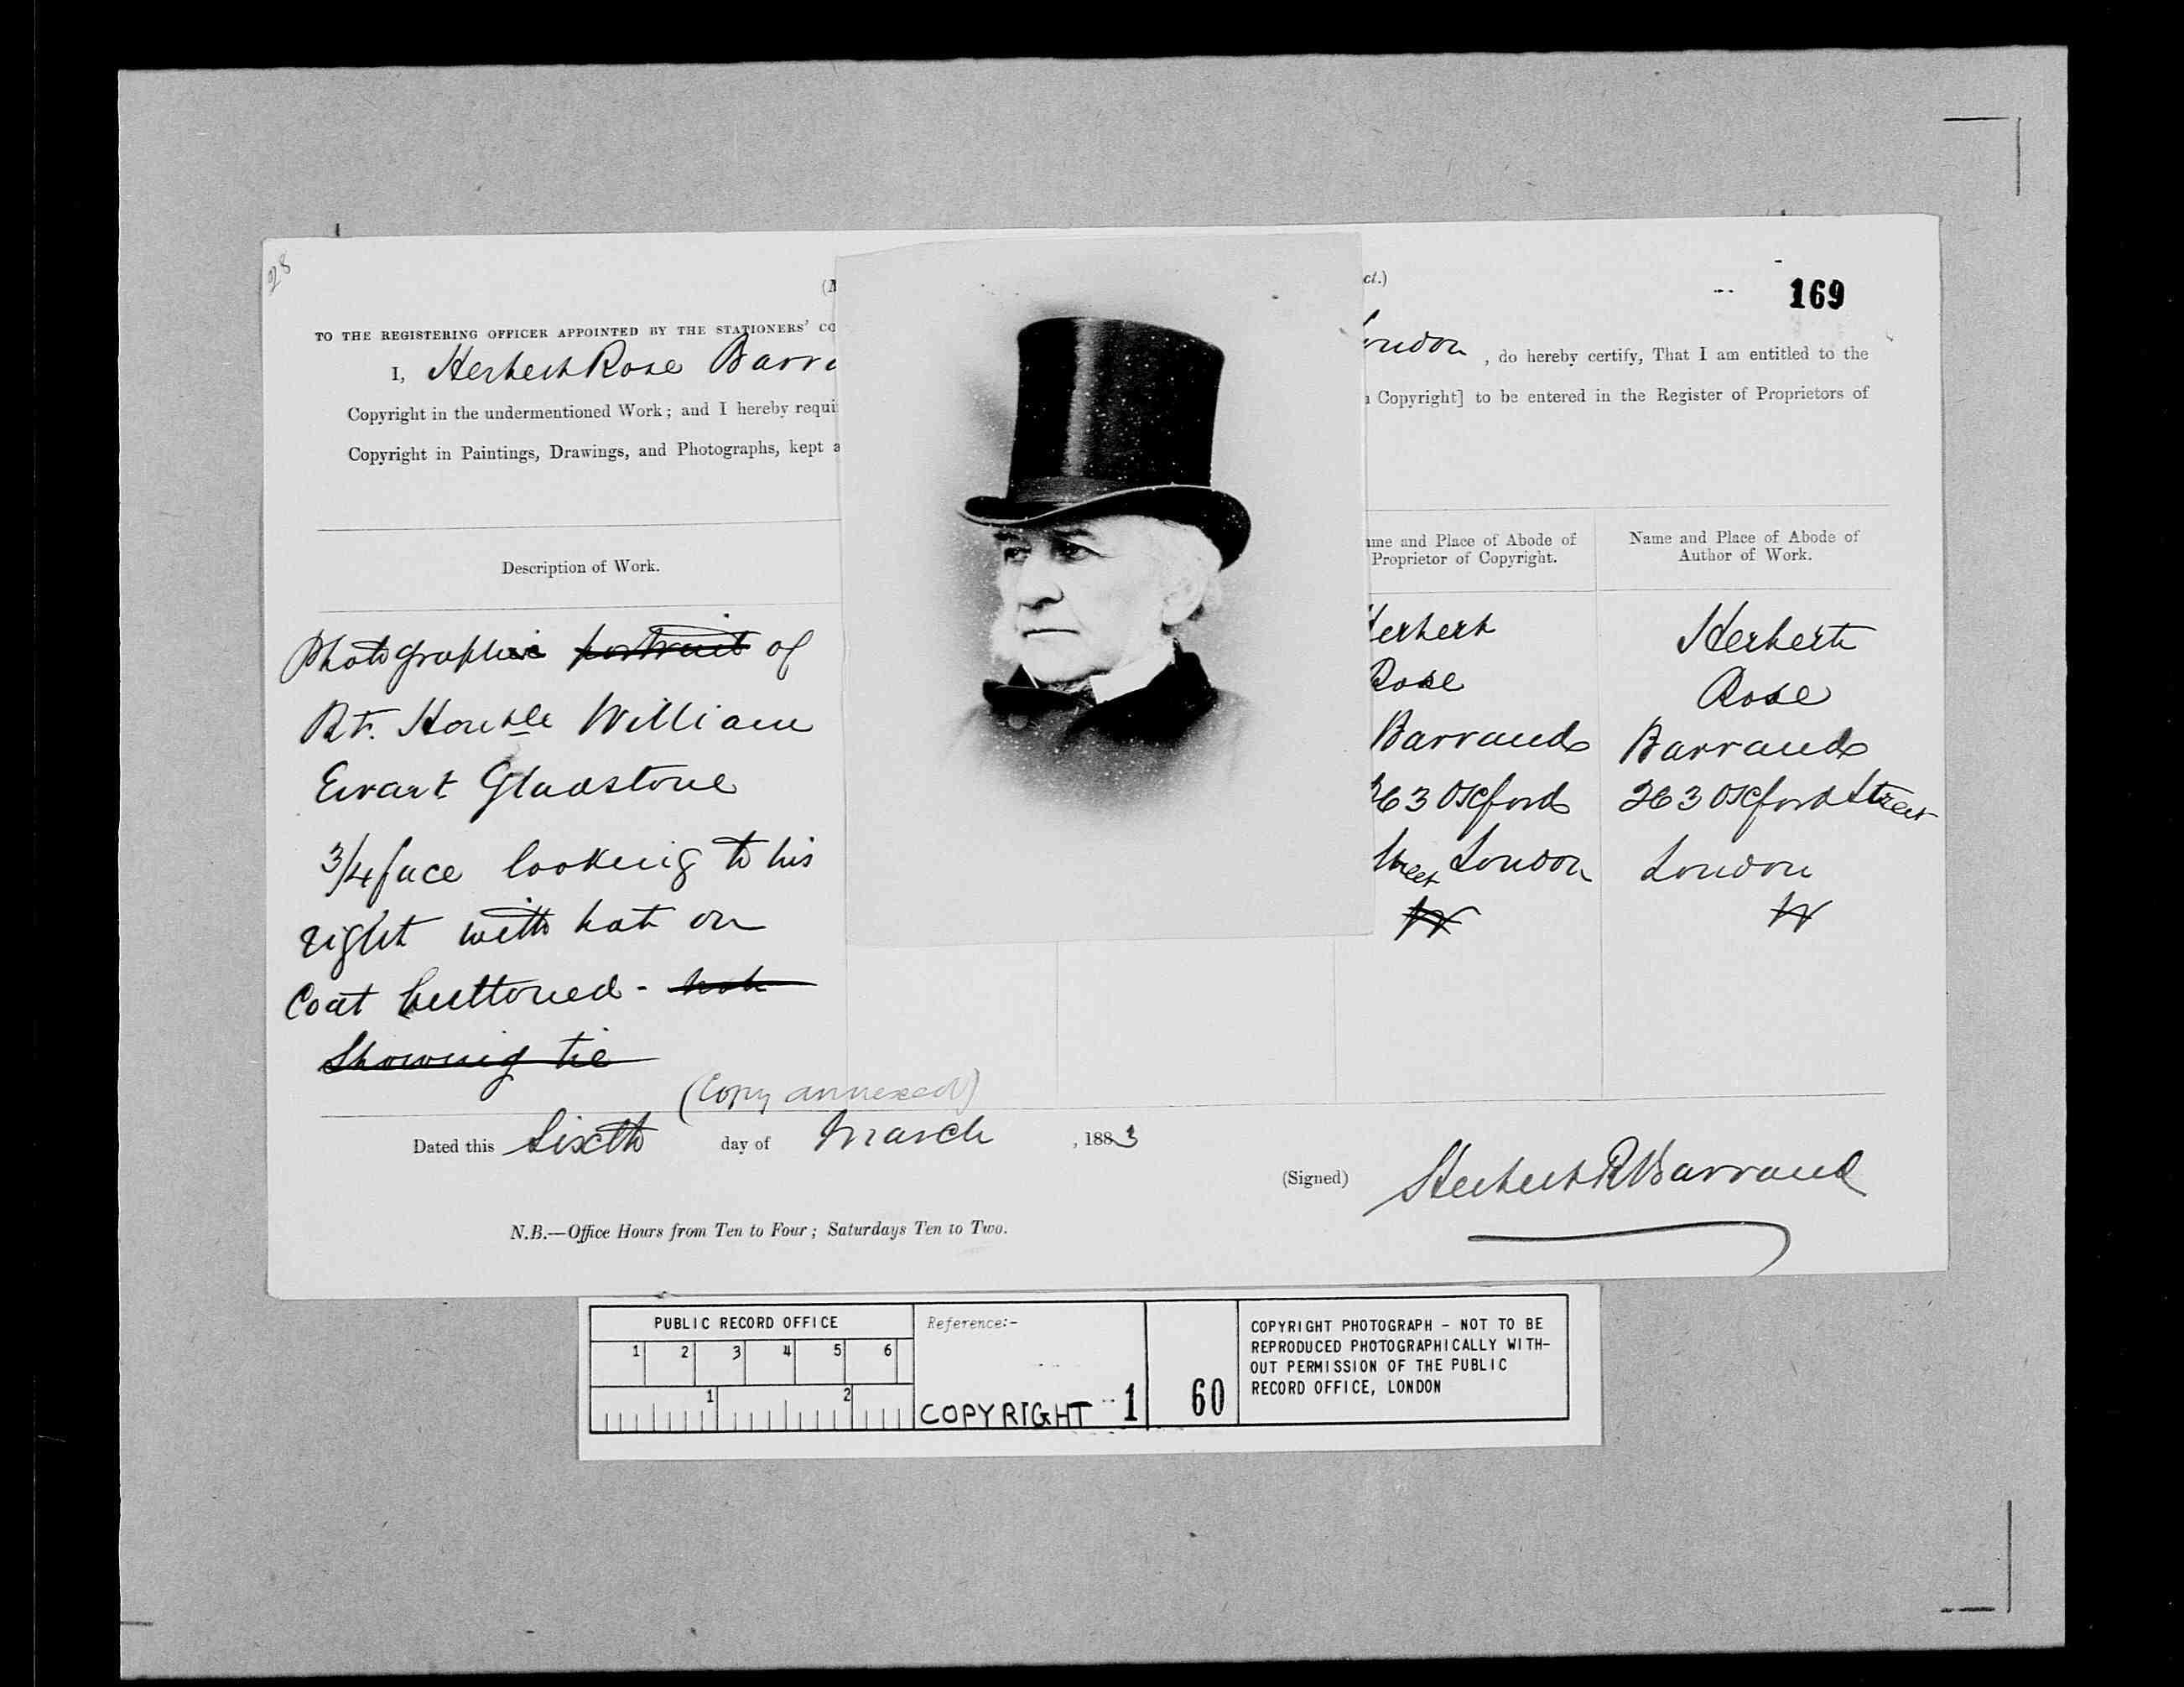 28
169
(M
ct.)
TO THE REGISTERING OFFICER APPOINTED BY THE STATIONERS' CO
I, Herbert Rose Barra
ondon , do hereby certify, That I am entitled to the
Copyright in the undermentioned Work; and I hereby requi
Copyright] to be entered in the Register of Proprietors of
Copyright in Paintings, Drawings, and Photographs, kept a
Description of Work.
ame and Place of Abode of
Proprietor of Copyright.
Name and Place of Abode of
Author of Work.
Photographic portrait of
Rt. Honble William
Ewart Gladstone
3/4 face looking to his
right with hat on
Coat buttoned - not
Showing tie
Herbert
Rose
Barraud
263 Oxford
Street London
W
Herbert
Rose
Barraud
263 Oxford Street
London
W
(Copy annexed)
Dated this Sixth day of March , 1883
(Signed) Herbert R Barraud
N.B.—Office Hours from Ten to Four; Saturdays Ten to Two.
PUBLIC RECORD OFFICE
1 2 3 4 5 6
1 2
Reference:-
COPYRIGHT 1
60
COPYRIGHT PHOTOGRAPH - NOT TO BE
REPRODUCED PHOTOGRAPHICALLY WITH-
OUT PERMISSION OF THE PUBLIC
RECORD OFFICE, LONDON